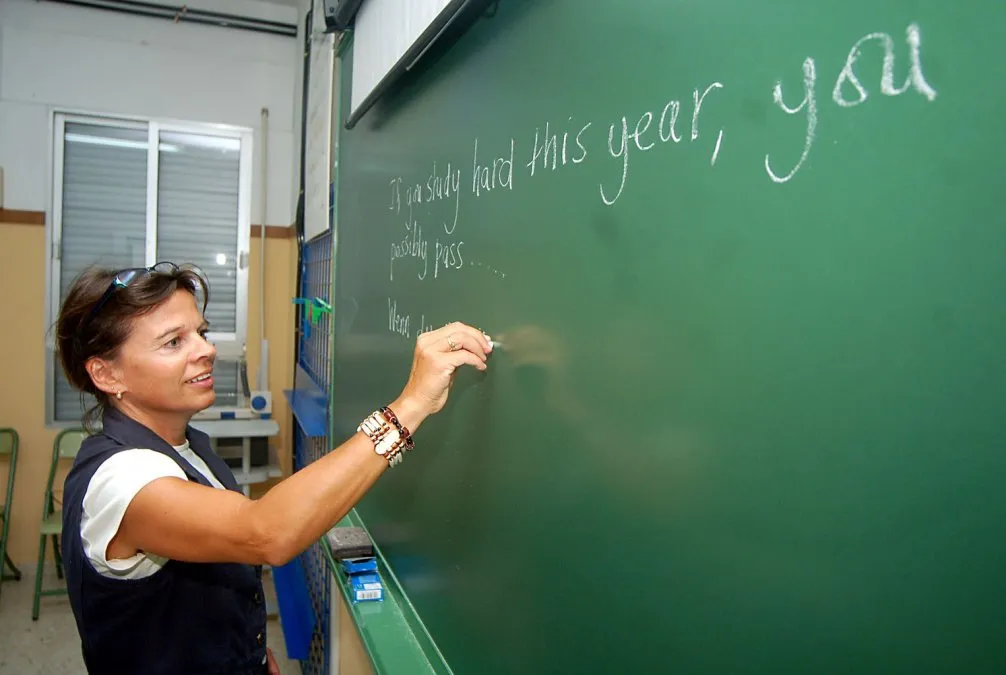 If you study hard this year, you
possibly pass......
Wenn du